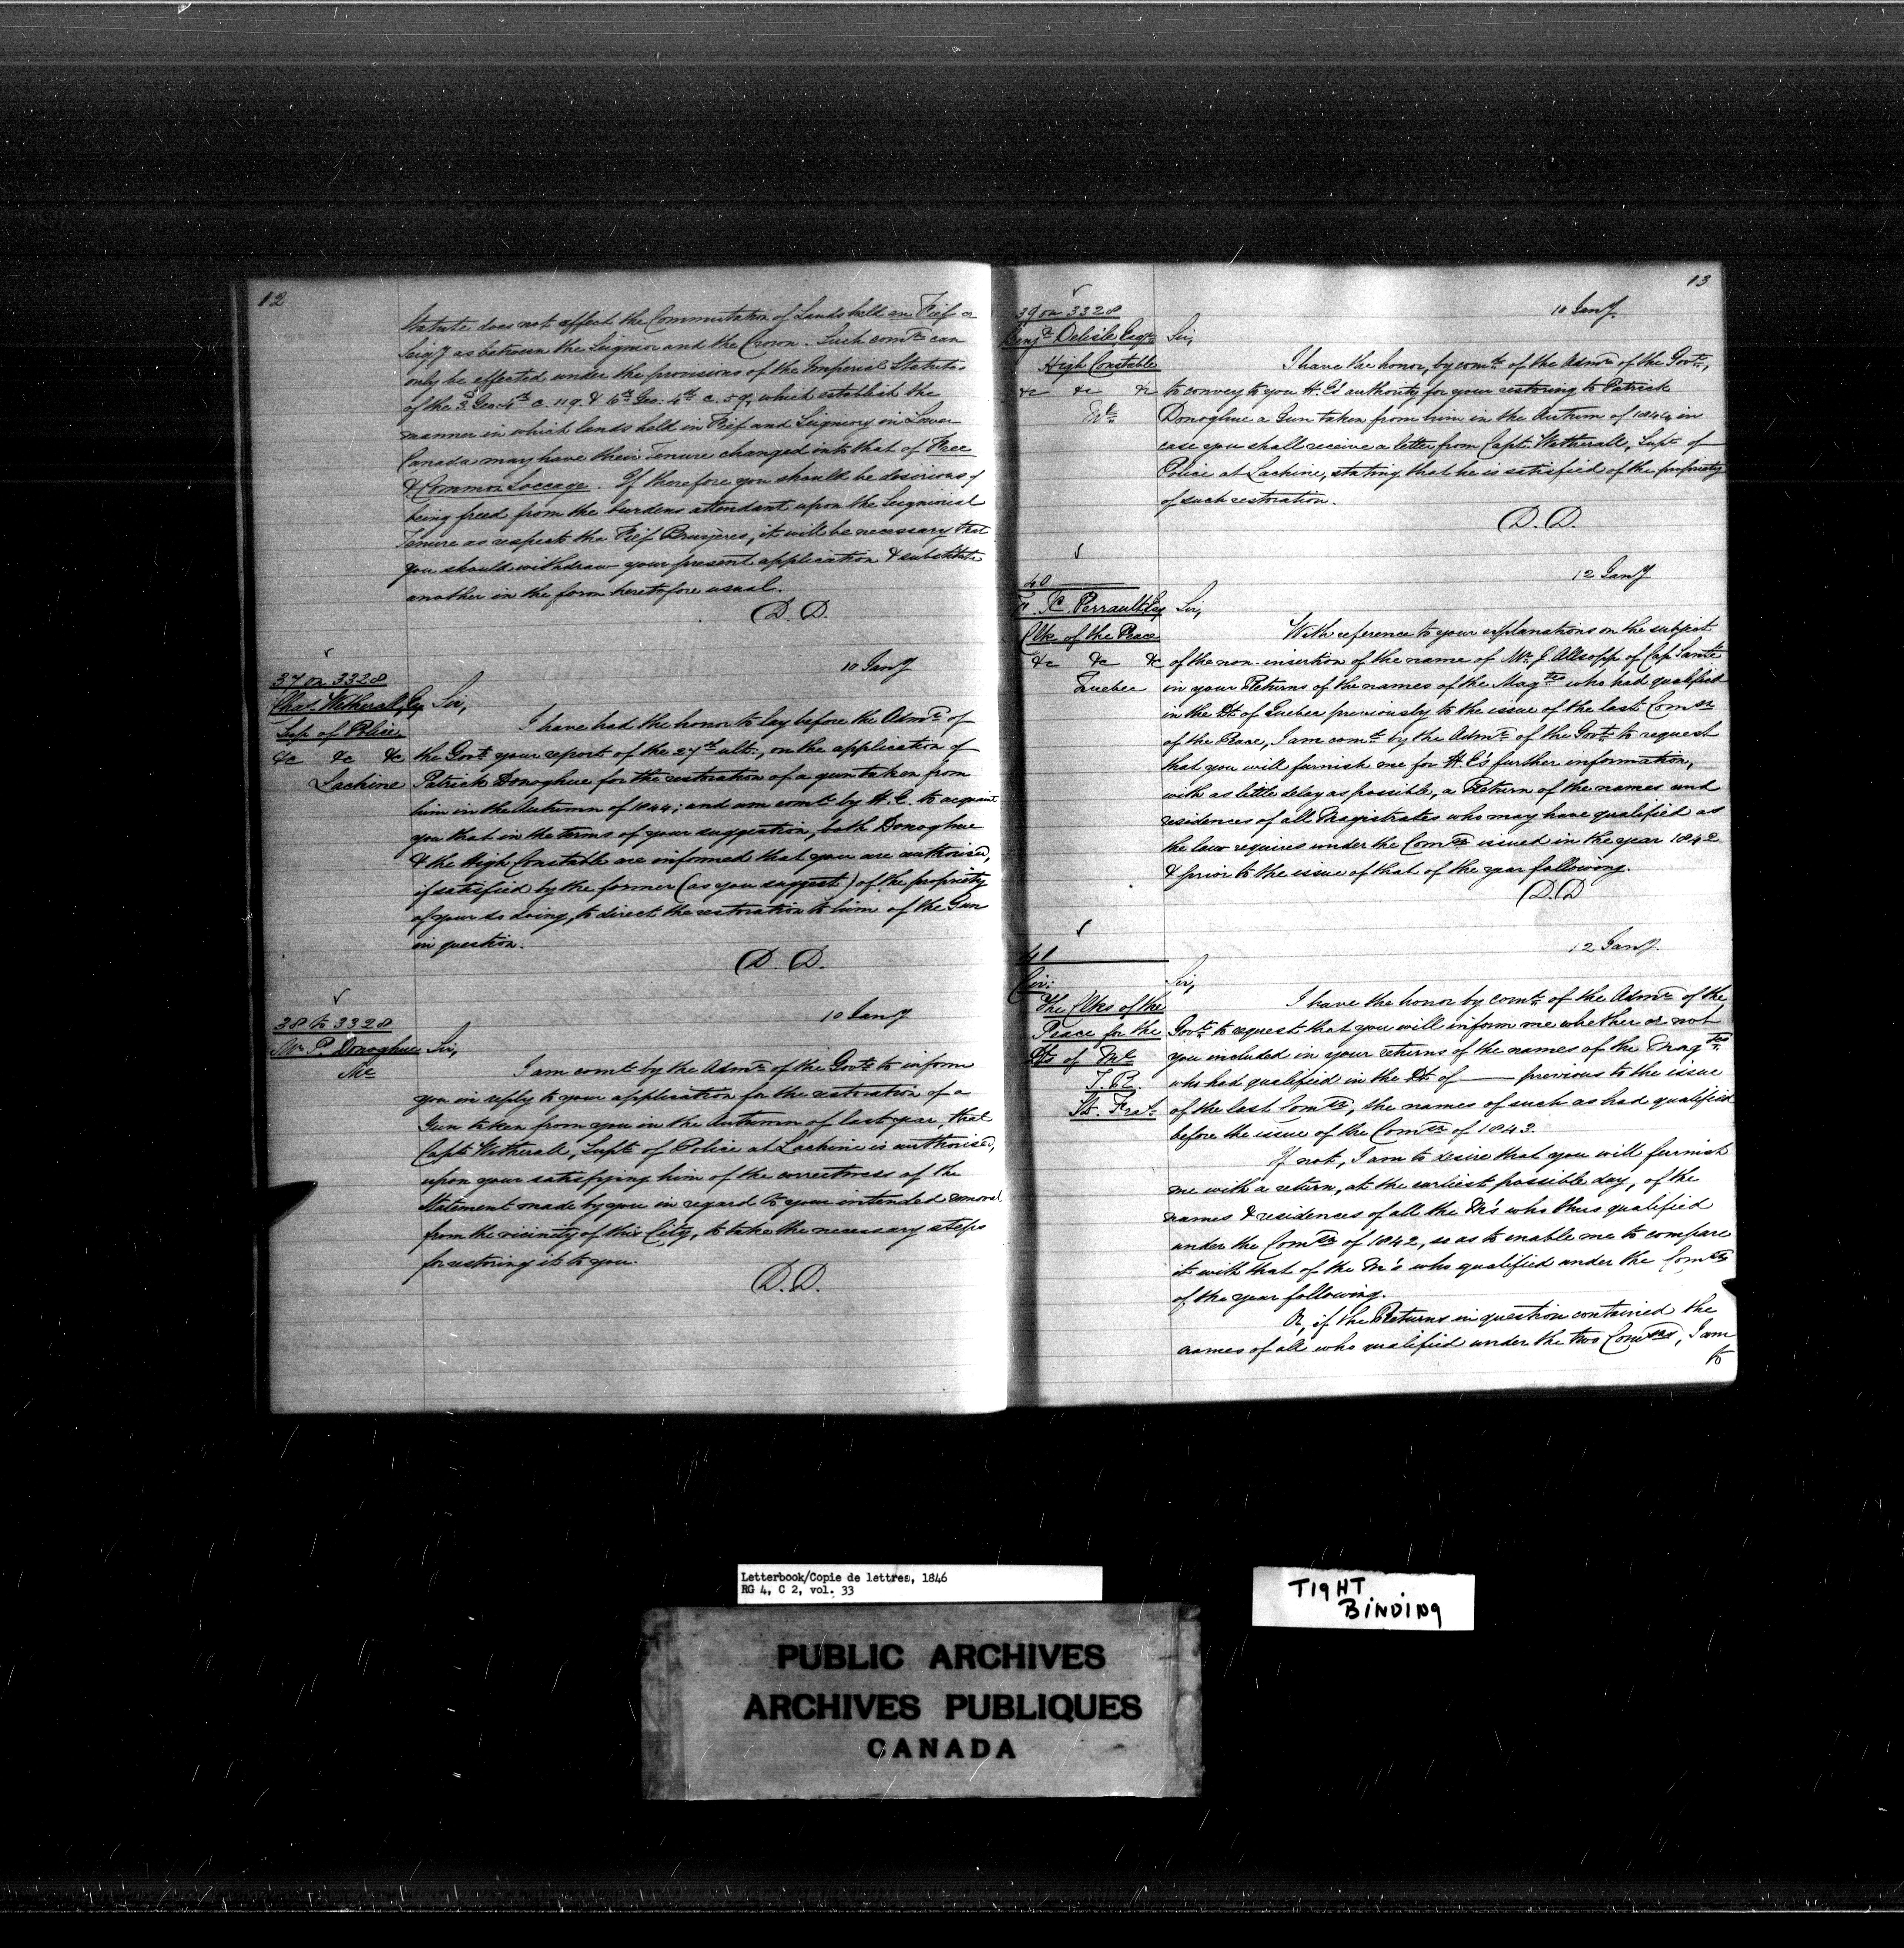 12
Statute does not affect the Commutation of Lands held en Fief or
Seigy as between the Seignior and the Crown. Such comn can
only be effected under the provisions of the Imperial Statutes
of the 3d Geo. 4th c. 119. & 6th Geo. 4th c. 59, which establish the
manner in which lands held in Fief and Seigniory in Lower
Canada may have their Tenure changed into that of Free
& Common Soccage. If therefore you should be desirious of
being freed from the burdens attendant upon the Seignorial
Tenure as respects the Fief Bruyères, it will be necessary that
you should withdraw your present application & substitute
another in the form heretofore usual.
D. D.
10 Jany
37 on 3328
Chas Wetherall Esq
Sup of Police
&c &c &c
Lachine
Sir,
I have had the honor to lay before the Admr of
the Govt your report of the 27th ult., on the application of
Patrick Donoghue for the restoration of a gun taken from
him in the Autumn of 1844; and am comd by H. E. to acquaint
you that in the terms of your suggestion, both Donoghue
& the High Constable are informed that you are authorised,
if satisfied by the former (as you suggest) of the propriety
of your so doing, to direct the restoration to him of the Gun
in question.
D. D.
10 Jany
38 to 3328
Mr P. Donoghue
Ml
Sir,
I am comd by the Admr of the Govt to inform
you in reply to your application for the restoration of a
Gun taken from you in the Autumn of last year, that
Capt Wetherall, Supt of Police at Lachine is authorised,
upon your satisfying him of the correctness of the
Statement made by you in regard to your intended removal
from the vicinity of this City, to take the necessary steps
for restoring it to you.
D. D.
13
10 Jany.
39 on 3328
Benjn Delisle Esqr
High Constable
&c &c &c
Ml
Sir,
I have the honor, by comd of the Admr of the Govt,
to convey to you H. E's authority for your restoring to Patrick
Donoghue a Gun taken from him in the Autumn of 1844 in
case you shall receive a letter from Capt. Wetherall, Supt of
Police at Lachine, stating that he is satisfied of the propriety
of such restoration.
D. D.
12 Jany
40
Perrault Esq
Clk of the Peace
&c &c &c
Quebec
Sir,
With reference to your explanations on the subject
of the non-insertion of the name of Mr G Allsopp of Cap Santé
in your Returns of the names of the Magtes who had qualified
in the Dt of Quebec previously to the issue of the last Comsn
of the Peace, I am comd by the Admr of the Govt to request
that you will furnish me for H. E's further information,
with as little delay as possible, a Return of the names and
residences of all Magistrates who may have qualified as
the law requires under the Comsn issued in the year 1842
& prior to the issue of that of the year following.
D. D
12 Jany.
41
Cir:
The Clks of the
Peace for the
Dts of Ml
T. R.
St. Frs
Sir,
I have the honor by comd of the Admr of the
Govt to request that you will inform me whether or not
you included in your returns of the names of the Magtes
who had qualified in the Dt of —— previous to the issue
of the last Comsn, the names of such as had qualified
before the issue of the Comsn of 1843.
If not, I am to desire that you will furnish
me with a return, at the earliest possible day, of the
names & residences of all the M's who thus qualified
under the Comsn of 1842, so as to enable me to compare
it with that of the M's who qualified under the Comsn
of the year following.
Or, if the Returns in question contained the
names of all who qualified under the two Comsns, I am
to
Letterbook/Copie de lettres, 1846
RG 4, C 2, vol. 33
TIGHT
BINDING
PUBLIC ARCHIVES
ARCHIVES PUBLIQUES
CANADA